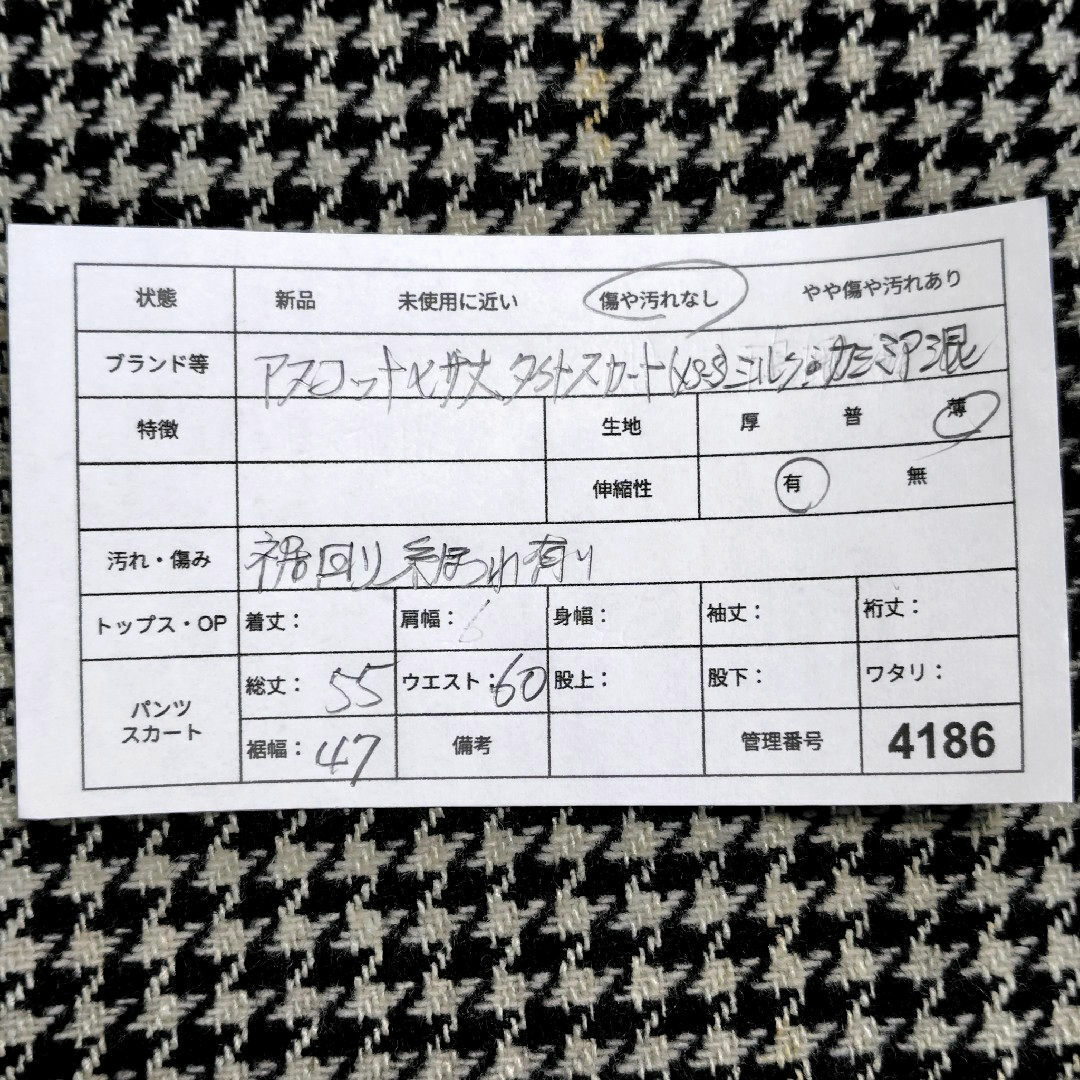 状態 新品 未使用に近い 傷や汚れなし やや傷や汚れあり
ブランド等 アスコット ひざ丈 タイトスカート(XS-S)ミルク・カシミヤ混
特徴 生地 厚 普 薄
伸縮性 有 無
汚れ・傷み 裾回り糸ほつれ有り
トップス・OP 着丈: 肩幅: 身幅: 袖丈: 裄丈:
パンツ スカート 総丈: 55 ウエスト: 60 股上: 股下: ワタリ:
裾幅: 47 備考 管理番号 4186